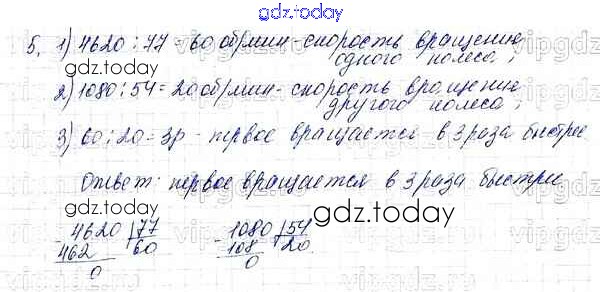 gdz.today
5. 1) 4620 : 77 = 60 об/мин - скорость вращение
одного колеса;
2) 1080 : 54 = 20 об/мин - скорость вращение
другого колеса;
3) 60 : 20 = 3р - первое вращается в 3 раза быстрее
Ответ: первое вращается в 3 раза быстрее
gdz.today
- 4620 | 77 - 1080 | 54
462 60 108 20
0 0
gdz.today